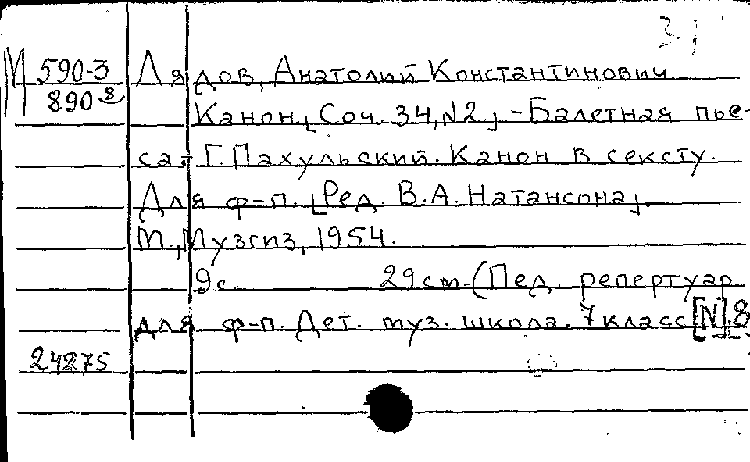 31
М 590-3 Лядов, Анатолий Константинович
890 8 Канон [Соч. 34, №2]. - Балетная пье-
са / Г. Пахульский. Канон в сексту.
Для ф-п. [Ред. В.А. Натансона].
М., Музгиз, 1954.
9с. 29см. (Пед. репертуар
для ф-п. Дет. муз. школа. 7 класс [N] 8
24275